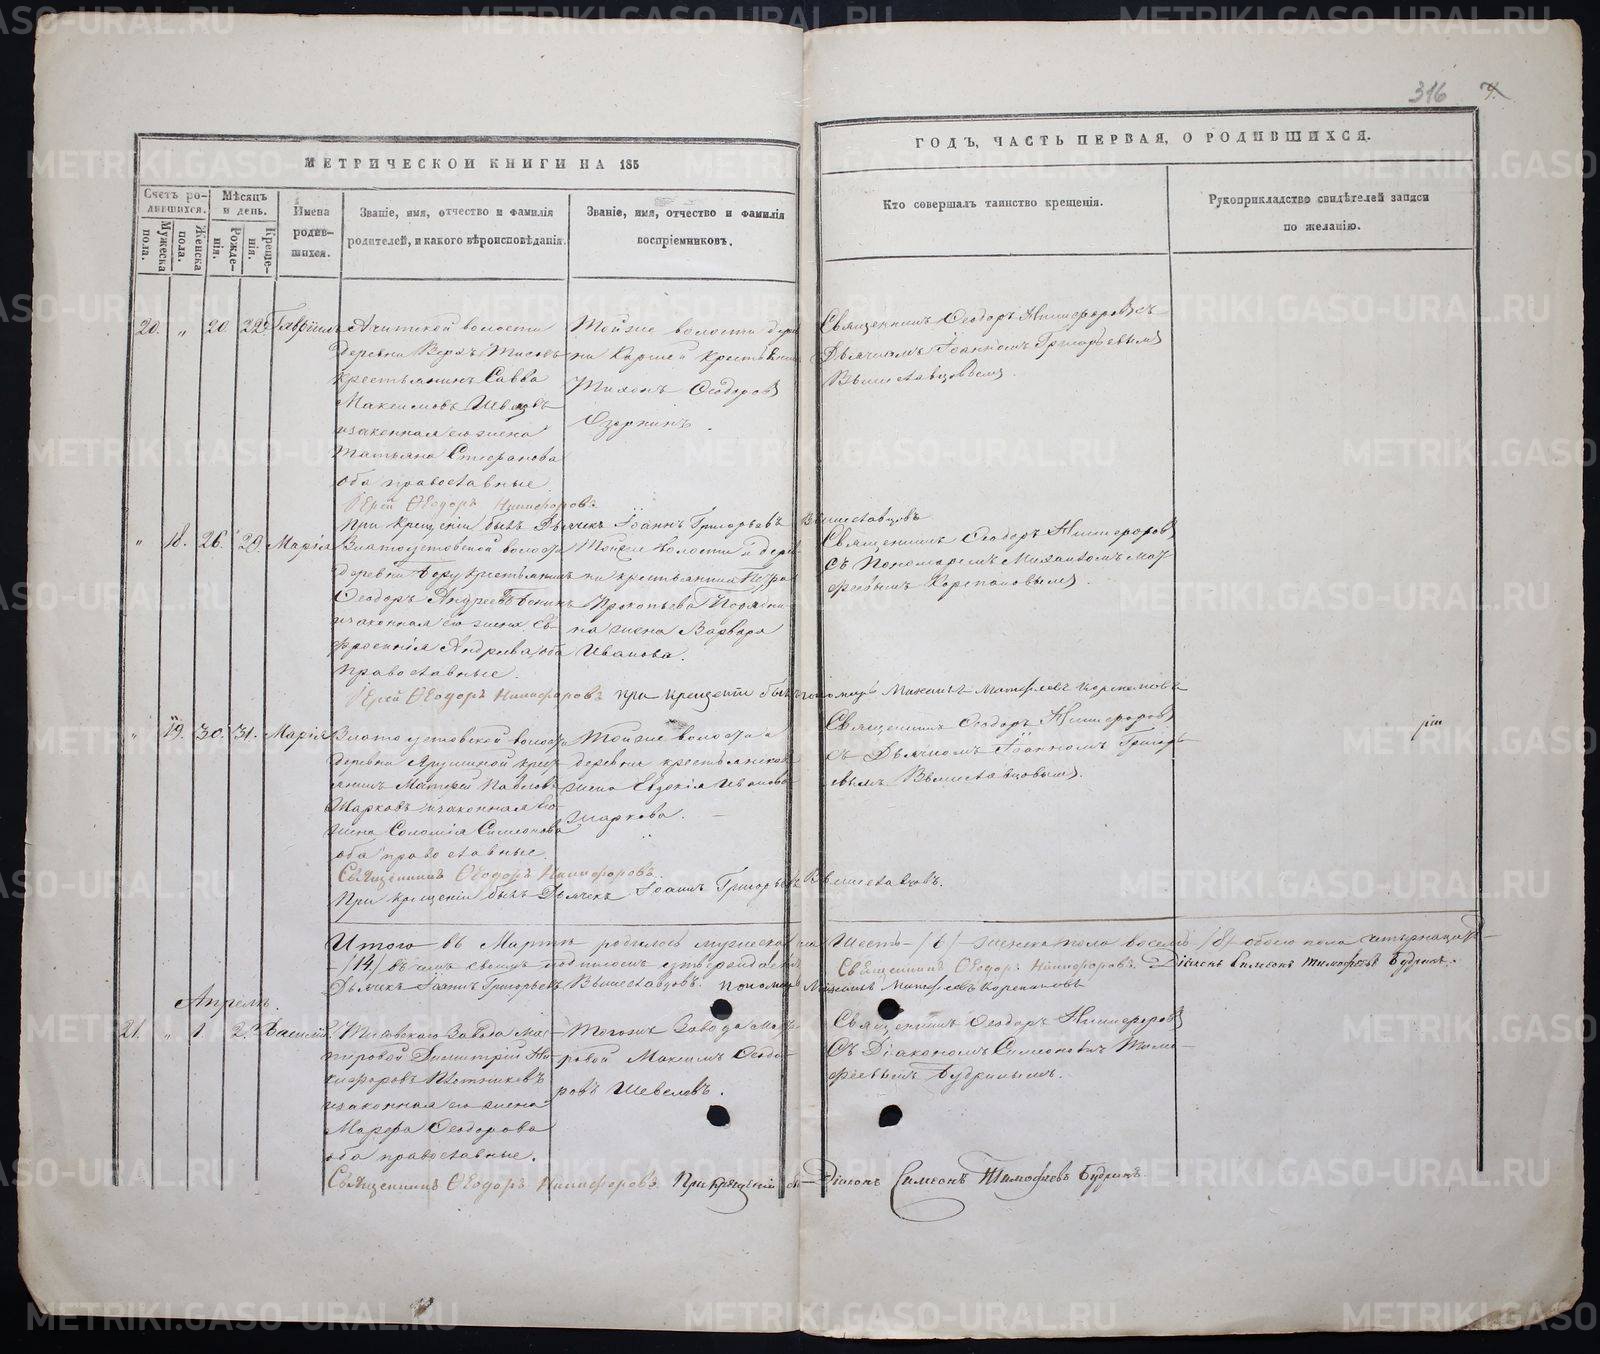 316 7.
МЕТРИЧЕСКОИ КНИГИ НА 185
ГОДЪ, ЧАСТЬ ПЕРВАЯ, О РОДИВШИХСЯ.
Счетъ родившихся.
Мѣсяцъ и день.
Мужеска пола.
Женска пола.
Рожденія.
Крещенія.
Имена родившихся.
Званіе, имя, отчество и фамилія
родителей, и какого вѣроисповѣданія.
Званіе, имя, отчество и фамилія
воспріемниковъ.
Кто совершалъ таинство крещенія.
Рукоприкладство свидѣтелей записи
по желанію.
20. " 20. 22. Гавріилъ
Ачитской волости
деревни Верхъ
крестьянинъ Савва
Максимовъ Швецовъ
и законная его жена
Татьяна Стефанова
оба православные
Тойже волости дерев
ни Каршей крестьянинъ
Тихонъ Ѳеодоровъ
Озорнинъ.
Священникъ Ѳеодоръ Никифоровъ съ
Дьячкомъ Іоанномъ Григорьевымъ
Вышеславцовымъ.
Іерей Ѳеодоръ Никифоровъ
При крещеніи былъ Дьячекъ Іоаннъ Григорьевъ Вышеславцовъ
" 18. 26. 29. Марія
Златоустовской волости
деревни
Ѳеодоръ Андреевъ
и законная его жена Ев-
фросинія Андреева, оба
православные.
Тойже волости и дерев
ни крестьянина Петра
Прокопьева
на жена Варвара
Иванова.
Священникъ Ѳеодоръ Никифоровъ
съ Пономаремъ Михаиломъ Мат
фѣевымъ Корепановымъ.
Іерей Ѳеодоръ Никифоровъ при крещеніи былъ пономарь Михаилъ Матфѣевъ Корепановъ
" 19. 30. 31. Марія
Златоустовской волости
деревни
янинъ Матѳей Павловъ
Шарковъ и законная его
жена Соломія Симеонова
оба православные.
Тойже волости и
деревни крестьянская
жена Евдокія Иванова
Шаркова.
Священникъ Ѳеодоръ Никифоровъ
съ Дьячкомъ Іоанномъ Григорь
евымъ Вышеславцовымъ.
Священникъ Ѳеодоръ Никифоровъ.
При крещеніи былъ Дьячекъ Іоаннъ Григорьевъ Вышеславцовъ.
Итого въ Мартѣ родилось мужеска пола Шесть /6/ женска пола восемь /8/ обоего пола четырнадцать
/14/ въ чемъ своимъ подписомъ утверждаемъ Священникъ Ѳеодоръ Никифоровъ Діаконъ Симеонъ Тимофеевъ Будринъ.
Дьячекъ Іоаннъ Григорьевъ Вышеславцовъ. пономарь Михаилъ Матфѣевъ Корепановъ
Апрѣль.
21. " 1. 2. Василій
Завода мас
теровой Димитрій Ни
кифоровъ Плотниковъ
и законная его жена
Марфа Ѳеодорова
оба православные.
Тогоже Завода масте
ровой Максимъ Ѳеодо
ровъ Шевелевъ.
Священникъ Ѳеодоръ Никифоровъ
съ Діакономъ Симеономъ Тимо
феевымъ Будринымъ.
Священникъ Ѳеодоръ Никифоровъ. При крещеніи Діаконъ Симеонъ Тимофеевъ Будринъ.
METRIKI.GASO-URAL.RU